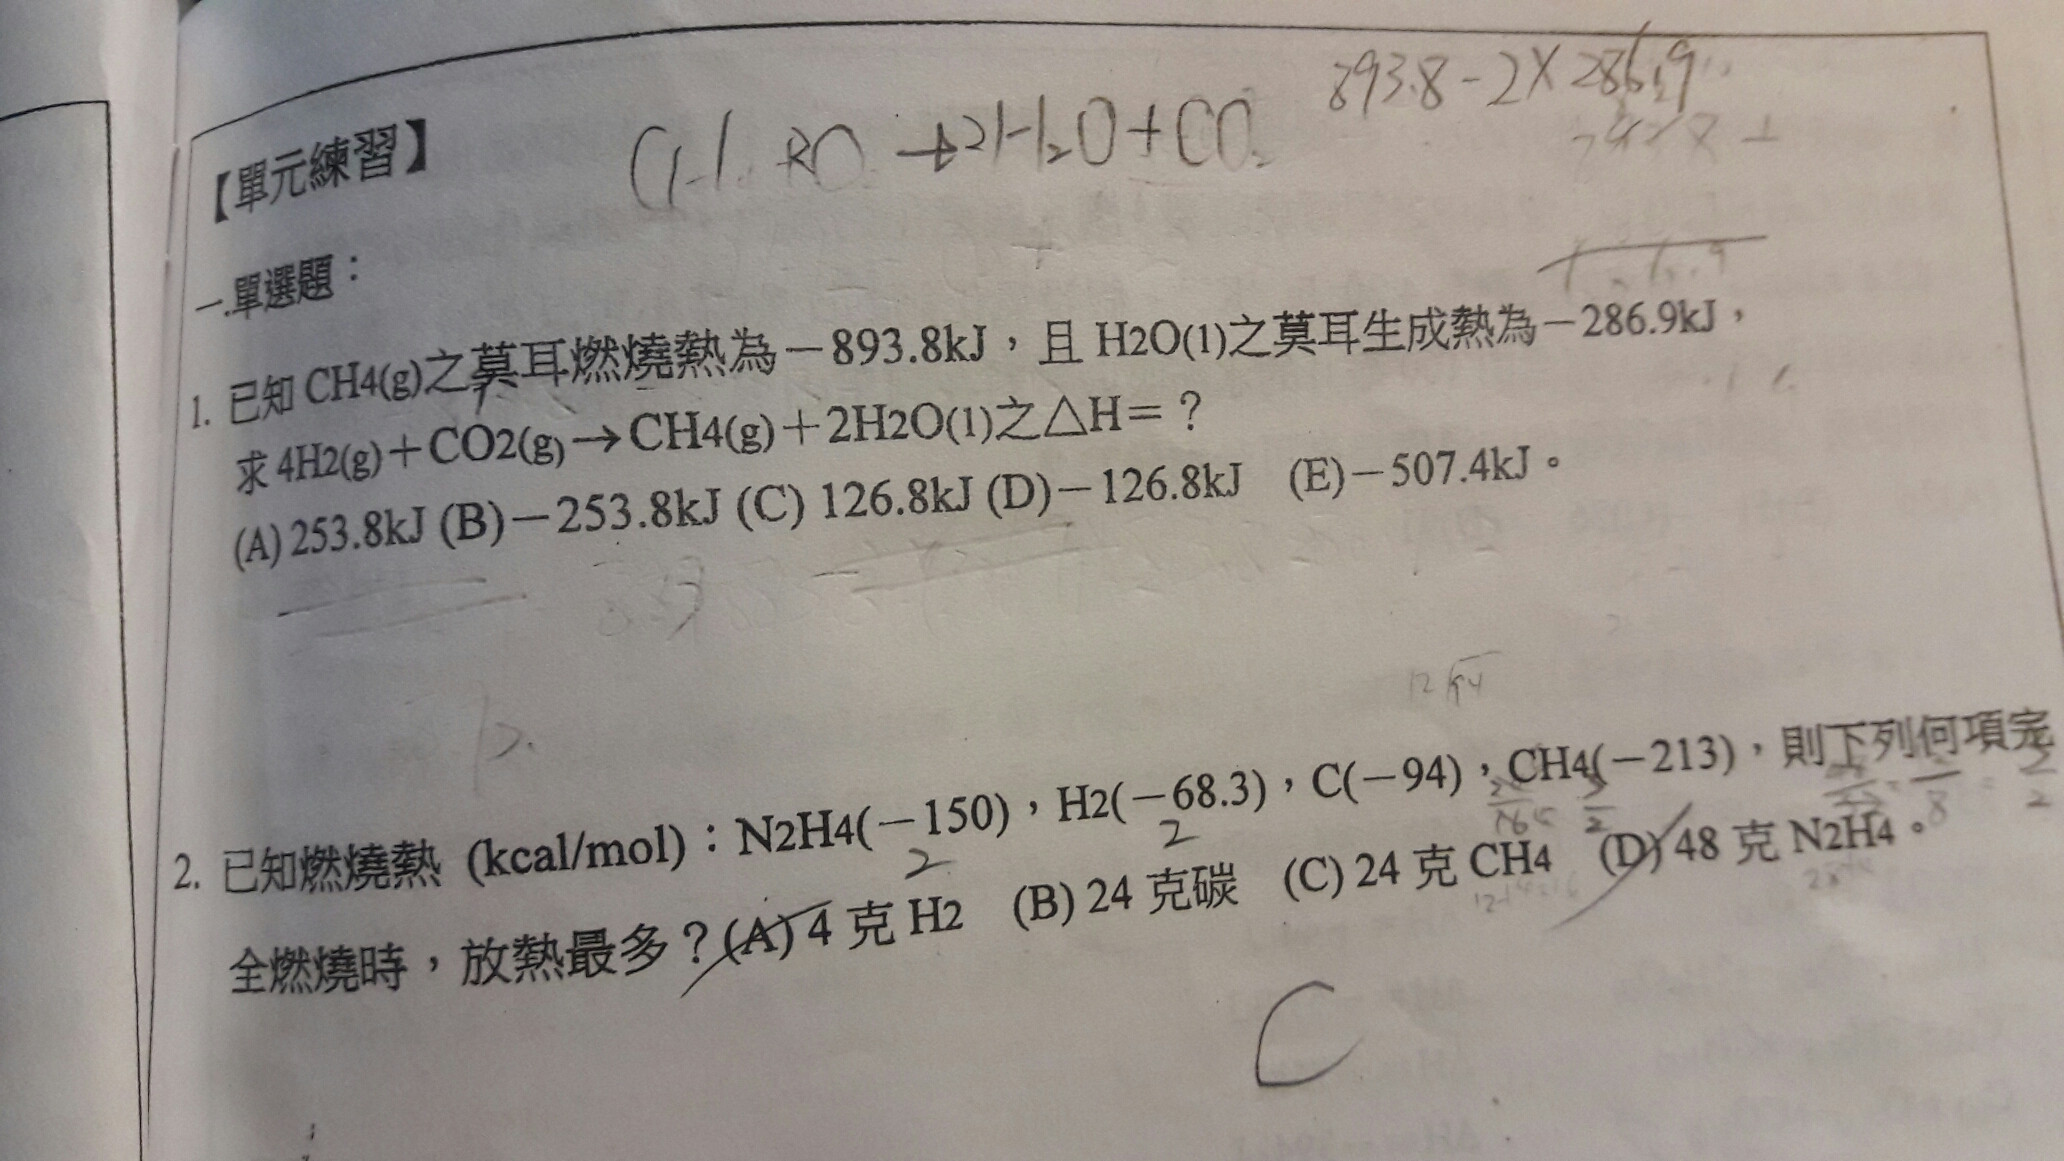 893.8-2×286.9
【單元練習】
→2H₂O+CO₂
一.單選題：
1. 已知 CH4(g)之莫耳燃燒熱為－893.8kJ，且 H2O(1)之莫耳生成熱為－286.9kJ，
求 4H2(g)＋CO2(g)→CH4(g)＋2H2O(1)之△H＝？
(A) 253.8kJ (B)－253.8kJ (C) 126.8kJ (D)－126.8kJ (E)－507.4kJ。
2. 已知燃燒熱 (kcal/mol)：N2H4(－150)，H2(－68.3)，C(－94)，CH4(－213)，則下列何項完
2 2
全燃燒時，放熱最多？(A) 4 克 H2 (B) 24 克碳 (C) 24 克 CH4 (D) 48 克 N2H4。
C